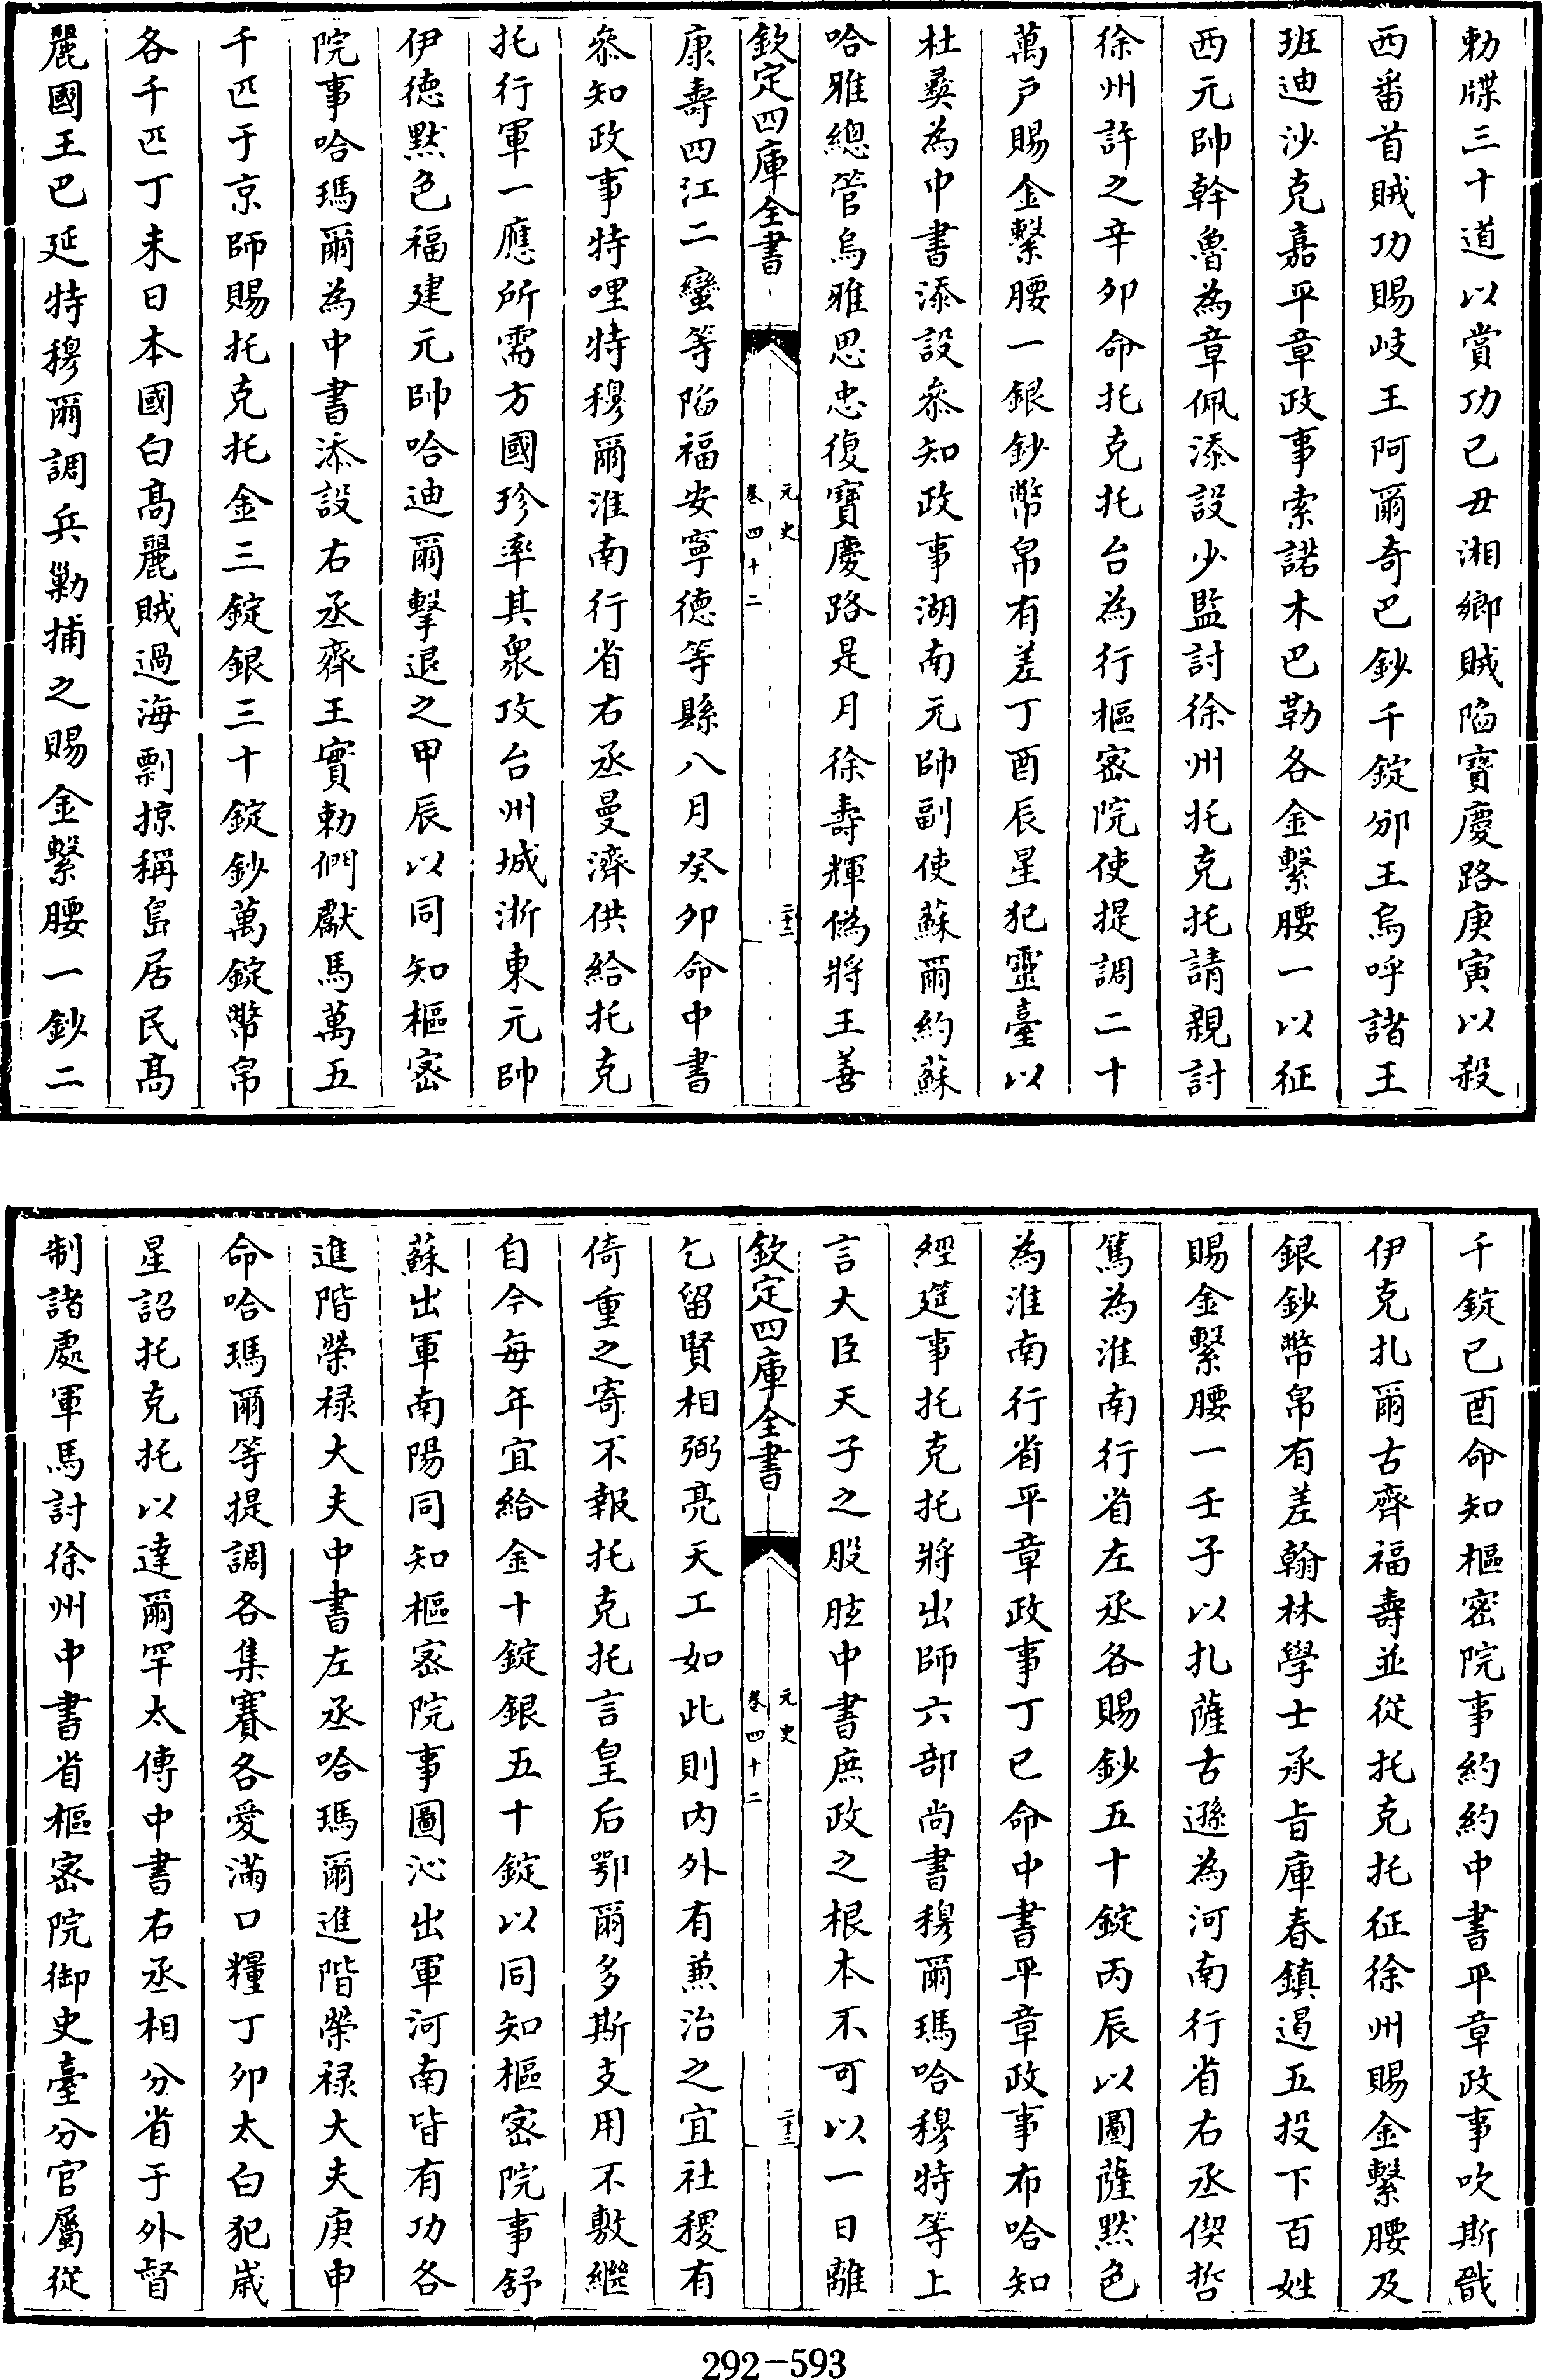 勅牒三十道以賞功己丑湘鄉賊陷寶慶路庚寅以殺
西番首賊功賜岐王阿爾奇巴鈔千錠邠王烏呼諸王
班迪沙克嘉平章政事索諾木巴勒各金繫腰一以征
西元帥幹魯為章佩添設少監討徐州托克托請親討
徐州許之辛卯命托克托台為行樞密院使提調二十
萬戶賜金繫腰一銀鈔幣帛有差丁酉辰星犯靈臺以
杜彞為中書添設叅知政事湖南元帥副使蘇爾約蘇
哈雅總管烏雅思忠復寶慶路是月徐壽輝偽將王善
欽定四庫全書
元史
卷四十二
二十二
康壽四江二蠻等陷福安寧德等縣八月癸卯命中書
叅知政事特哩特穆爾淮南行省右丞曼濟供給托克
托行軍一應所需方國珍率其衆攻台州城浙東元帥
伊德黙色福建元帥哈迪爾擊退之甲辰以同知樞密
院事哈瑪爾為中書添設右丞齊王實勅們獻馬萬五
千匹于京師賜托克托金三錠銀三十錠鈔萬錠幣帛
各千匹丁未日本國白高麗賊過海剽掠稱島居民高
麗國王巴延特穆爾調兵勦捕之賜金繫腰一鈔二
千錠己酉命知樞密院事約約中書平章政事吹斯戩
伊克扎爾古齊福壽並從托克托征徐州賜金繫腰及
銀鈔幣帛有差翰林學士承旨庫春鎮遏五投下百姓
賜金繫腰一壬子以扎薩古遜為河南行省右丞偰哲
篤為淮南行省左丞各賜鈔五十錠丙辰以圖薩黙色
為淮南行省平章政事丁巳命中書平章政事布哈知
經筵事托克托將出師六部尚書穆爾瑪哈穆特等上
言大臣天子之股肱中書庶政之根本不可以一日離
欽定四庫全書
元史
卷四十二
二十三
乞留賢相弼亮天工如此則内外有兼治之宜社稷有
倚重之寄不報托克托言皇后鄂爾多斯支用不敷繼
自今每年宜給金十錠銀五十錠以同知樞密院事舒
蘇出軍南陽同知樞密院事圖沁出軍河南皆有功各
進階榮禄大夫中書左丞哈瑪爾進階榮禄大夫庚申
命哈瑪爾等提調各集賽各愛滿口糧丁卯太白犯歲
星詔托克托以達爾罕太傅中書右丞相分省于外督
制諸處軍馬討徐州中書省樞密院御史臺分官屬從
292-593